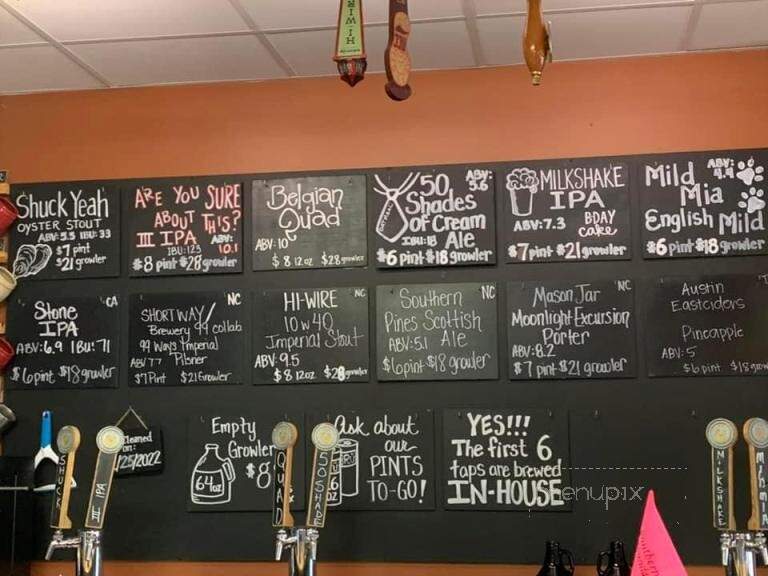 HI-WIRE
Shuck Yeah
OYSTER STOUT
ABV: 5.5 IBU: 33
$7 pint
$21 growler
ARE YOU SURE
ABOUT THIS?
III IPA
IBU: 123
ABV:
10.1
$8 pint $28 growler
Belgian
Quad
ABV: 10
$8 12oz $28 growler
50
Shades
of Cream
Ale
ABV:
5.6
IBU: 18
$6 pint $18 growler
MILKSHAKE
IPA
ABV: 7.3
BDAY
Cake
$7 pint $21 growler
Mild
Mia
English Mild
ABV:
4.4
$6 pint $18 growler
Stone
IPA
CA
ABV: 6.9 IBU: 71
$6 pint $18 growler
NC
SHORTWAY/
Brewery 99 collab
99 Ways Imperial
Pilsner
ABV 7.7
$7 Pint $21 Growler
NC
HI-WIRE
10w40
Imperial Stout
ABV: 9.5
$8 12oz $28 growler
NC
Southern
Pines Scottish
Ale
ABV: 5.1
$6 pint $18 growler
NC
Mason Jar
Moonlight Excursion
Porter
ABV: 8.2
$7 pint $21 growler
Austin
Eastciders
Pineapple
ABV: 5
$6 pint $18
Cleaned
on:
/25/2022
Empty
Growler
$8
64oz
Ask about
our
PINTS
TO-GO!
YES!!!
The first 6
taps are brewed
IN-HOUSE
menupix
SHUCK
III IPA
QUAD
50 SHADES
MILKSHAKE
MILD MIA